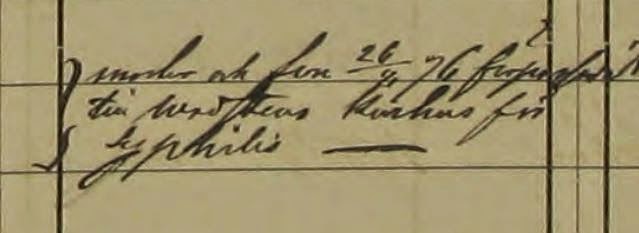 moder och son 26/4 76 förpassad
till Wadstena Kurhus för
Syphilis —